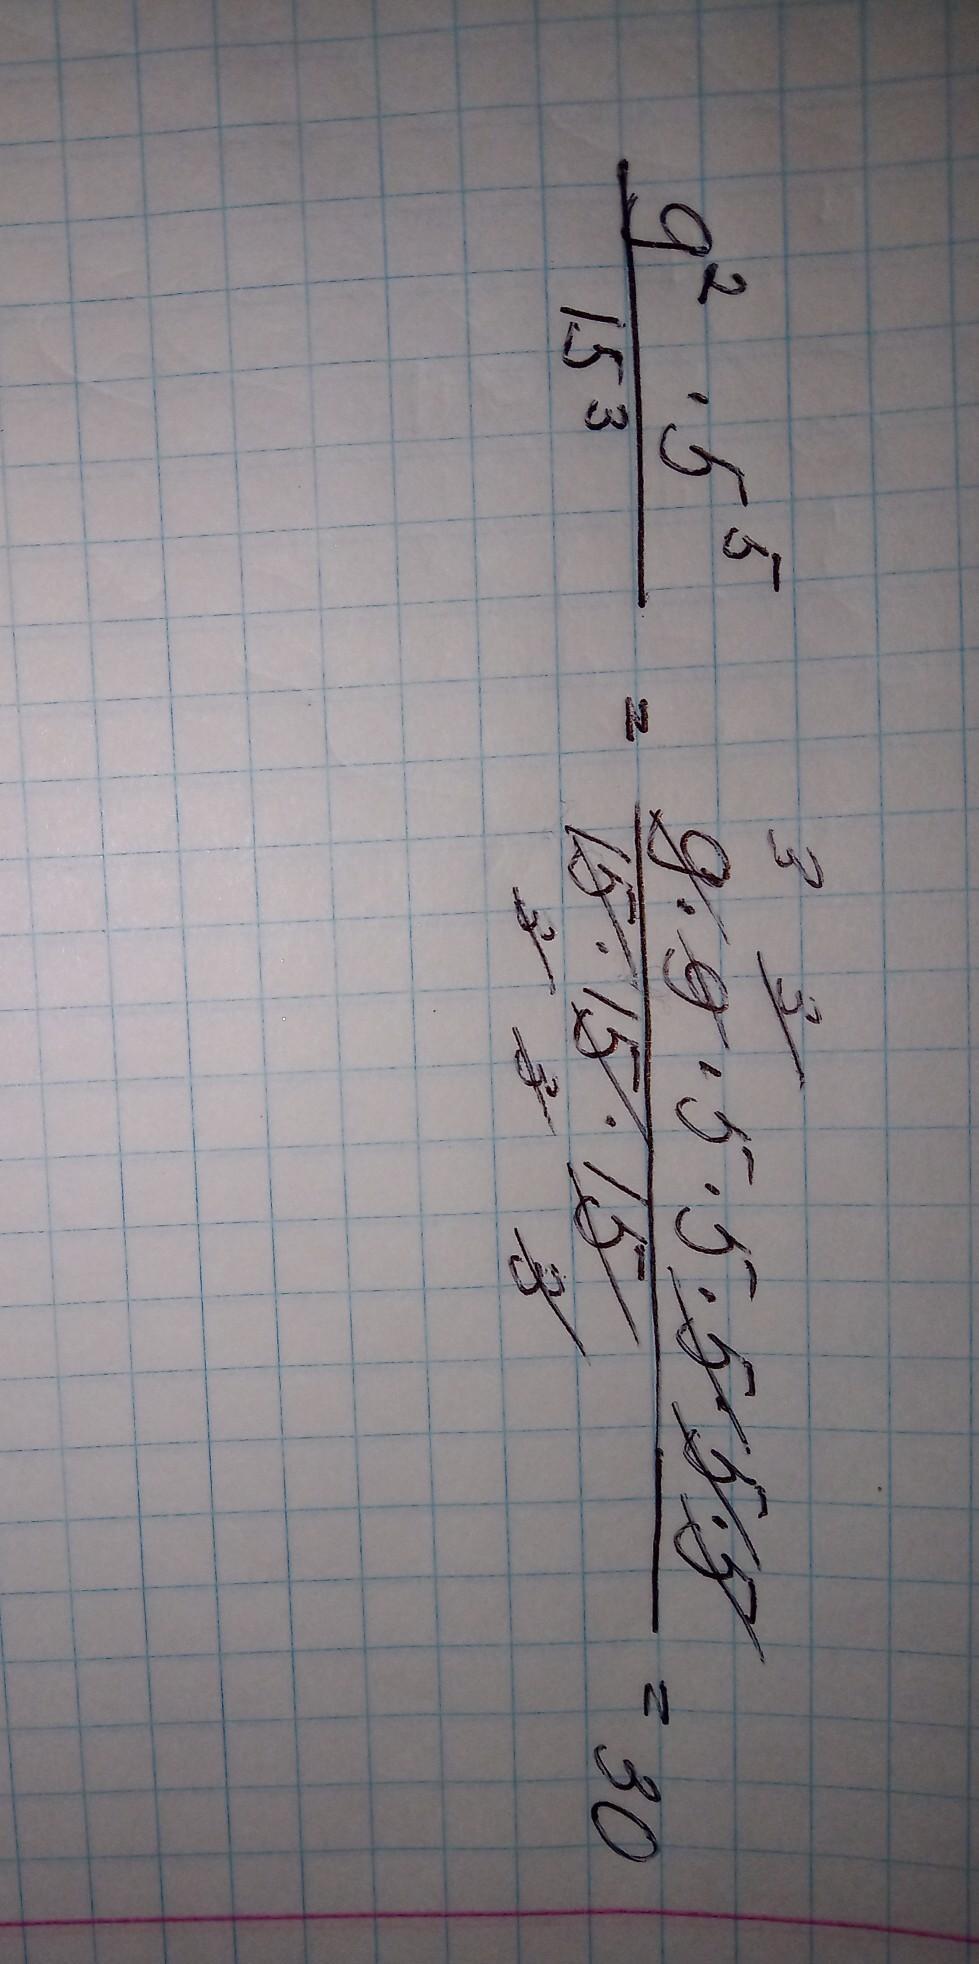 9² · 5⁵ / 15³ = 9 · 9 · 5 · 5 · 5 · 5 · 5 / 15 · 15 · 15 = 30
3 3
3 3 3